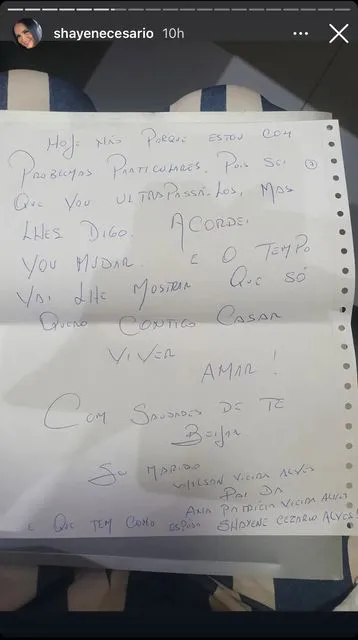 shayenecesario 10h
Hoje não porque estou com
problemas particulares. Pois sei
que vou ultrapassá-los, mas
lhes digo. Acordei
vou mudar. E o tempo
vai lhe mostrar que só
quero contigo casar
viver
amar!
Com saudades de te
beijar
Seu marido
Wilson Vieira Alves
Pai da
Ana Patricia Vieira Alves
e que tem como esposa Shayene Cezario Alves!